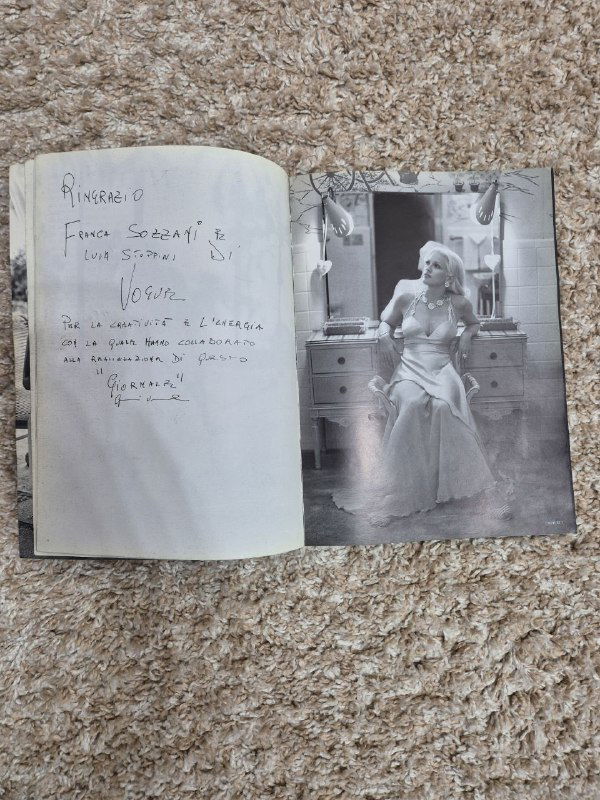 RINGRAZIO
FRANCA SOZZANI E
LUCA STOPPINI DI
VOGUE
PER LA CREATIVITÀ E L'ENERGIA
CON LA QUALE HANNO COLLABORATO
ALLA REALIZZAZIONE DI QUESTO
"GIORNALE"